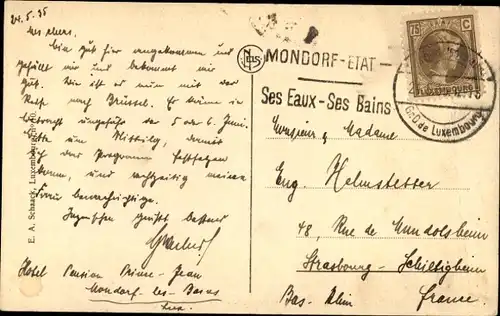 24.5.35
Bin gut hier angekommen und
gefällt mir und bekommt mir
gut. Wie ist es nun mit der
Reise nach Brüssel. Es käme in
betracht ungefähr der 5 oder 6. Juni.
Bitte um Mitteilg, damit
ich das Programm festlegen
kann, und rechtzeitig meine
Frau benachrichtige.
Inzwischen grüsst bestens
Hotel Pension Prince-Jean
Mondorf-les-Bains
Lux.
E. A. Schaack, Luxembourg
MONDORF-ETAT
Ses Eaux-Ses Bains
75 C
G-D de Luxembourg
Monsieur & Madame
Eug. Helmstetter
48, Rue de Mundolsheim
Strasbourg-Schiltigheim
Bas-Rhin France.